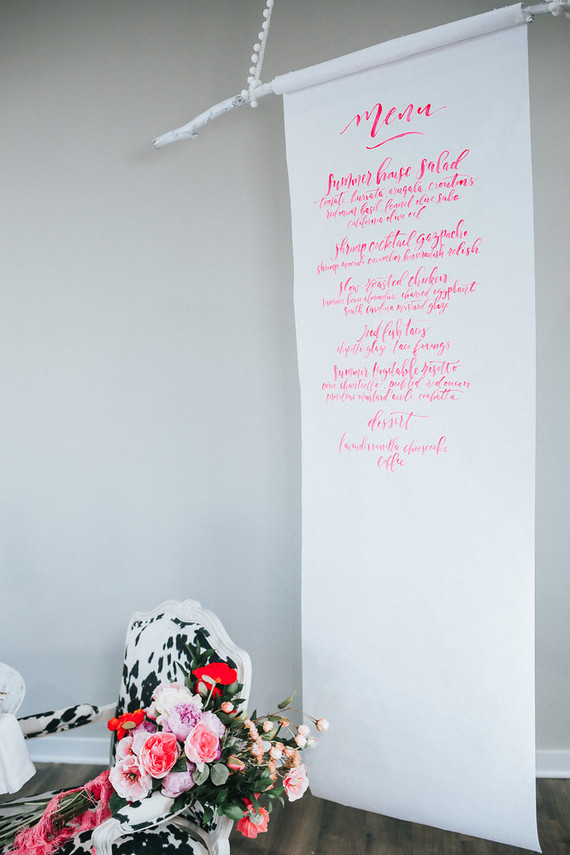 menu
summer house salad
tomato, burrata, arugala, croutons
red onion basil fennel olive salsa
california olive oil
shrimp cocktail gazpacho
shrimp avocado cucumber horseradish relish
slow roasted chicken
charred eggplant
south carolina mustard glaze
red fish tacos
chipotle glaze taco fixings
summer vegetable risotto
corn, chanterelle, pickled red onion
mustard aioli ciabatta
dessert
lavender vanilla cheesecake
coffee